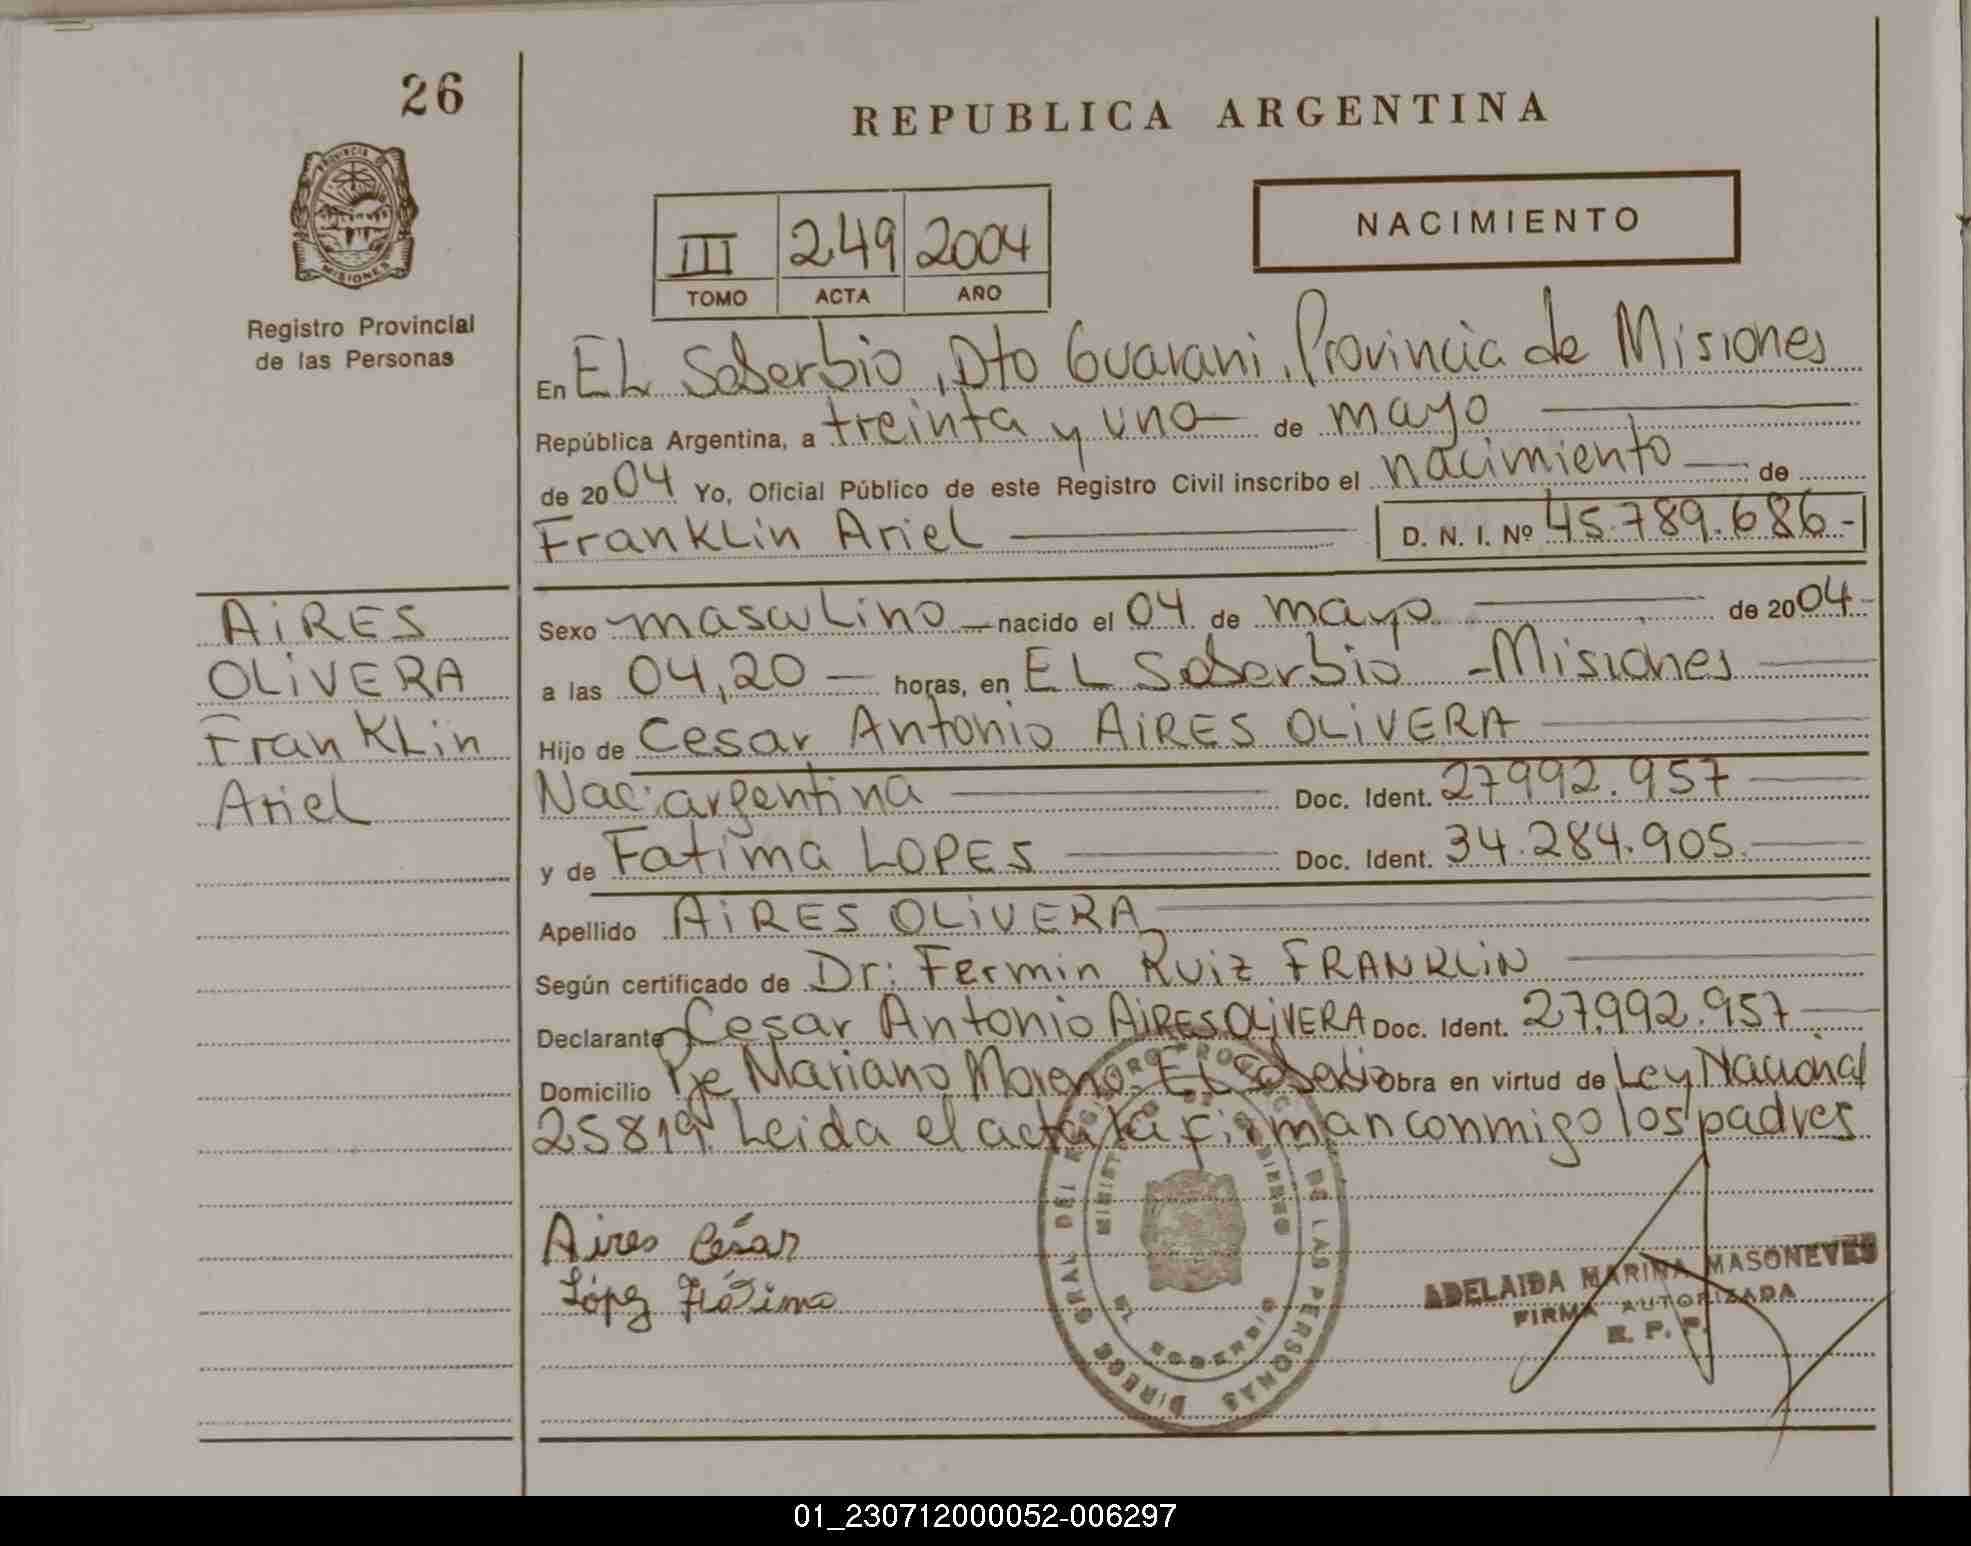 26
REPUBLICA ARGENTINA
PROVINCIA DE
MISIONES
Registro Provincial
de las Personas
III 249 2004
TOMO ACTA AÑO
NACIMIENTO
En EL Soberbio, Dto Guarani, Provincia de Misiones
República Argentina, a treinta y uno de mayo
de 2004 Yo, Oficial Público de este Registro Civil inscribo el nacimiento de
Franklin Ariel D. N. I. Nº 45.789.686.-
AiRES
OLiVERA
Franklin
Ariel
Sexo masculino nacido el 04 de mayo de 2004
a las 04,20 horas, en EL Soberbio - Misiones
Hijo de Cesar Antonio AiRES OLiVERA
Nac: argentina Doc. Ident. 27992.957
y de Fatima LOPES Doc. Ident. 34.284.905.
Apellido AiRES OLiVERA
Según certificado de Dr: Fermin Ruiz FRANKLiN
Declarante Cesar Antonio AiRES OLiVERA Doc. Ident. 27.992.957
Domicilio Pje Mariano Moreno. EL Soberbio Obra en virtud de Ley Nacional
25819. Leida el acta la firman conmigo los padres
Aires César
López Fátima
DIRECC GRAL DEL REGISTRO PROVINCIAL DE LAS PERSONAS
MINISTERIO DE GOBIERNO
MISIONES
ADELAIDA MARINA MASONEVES
FIRMA AUTORIZADA
R. P. P.
01_230712000052-006297